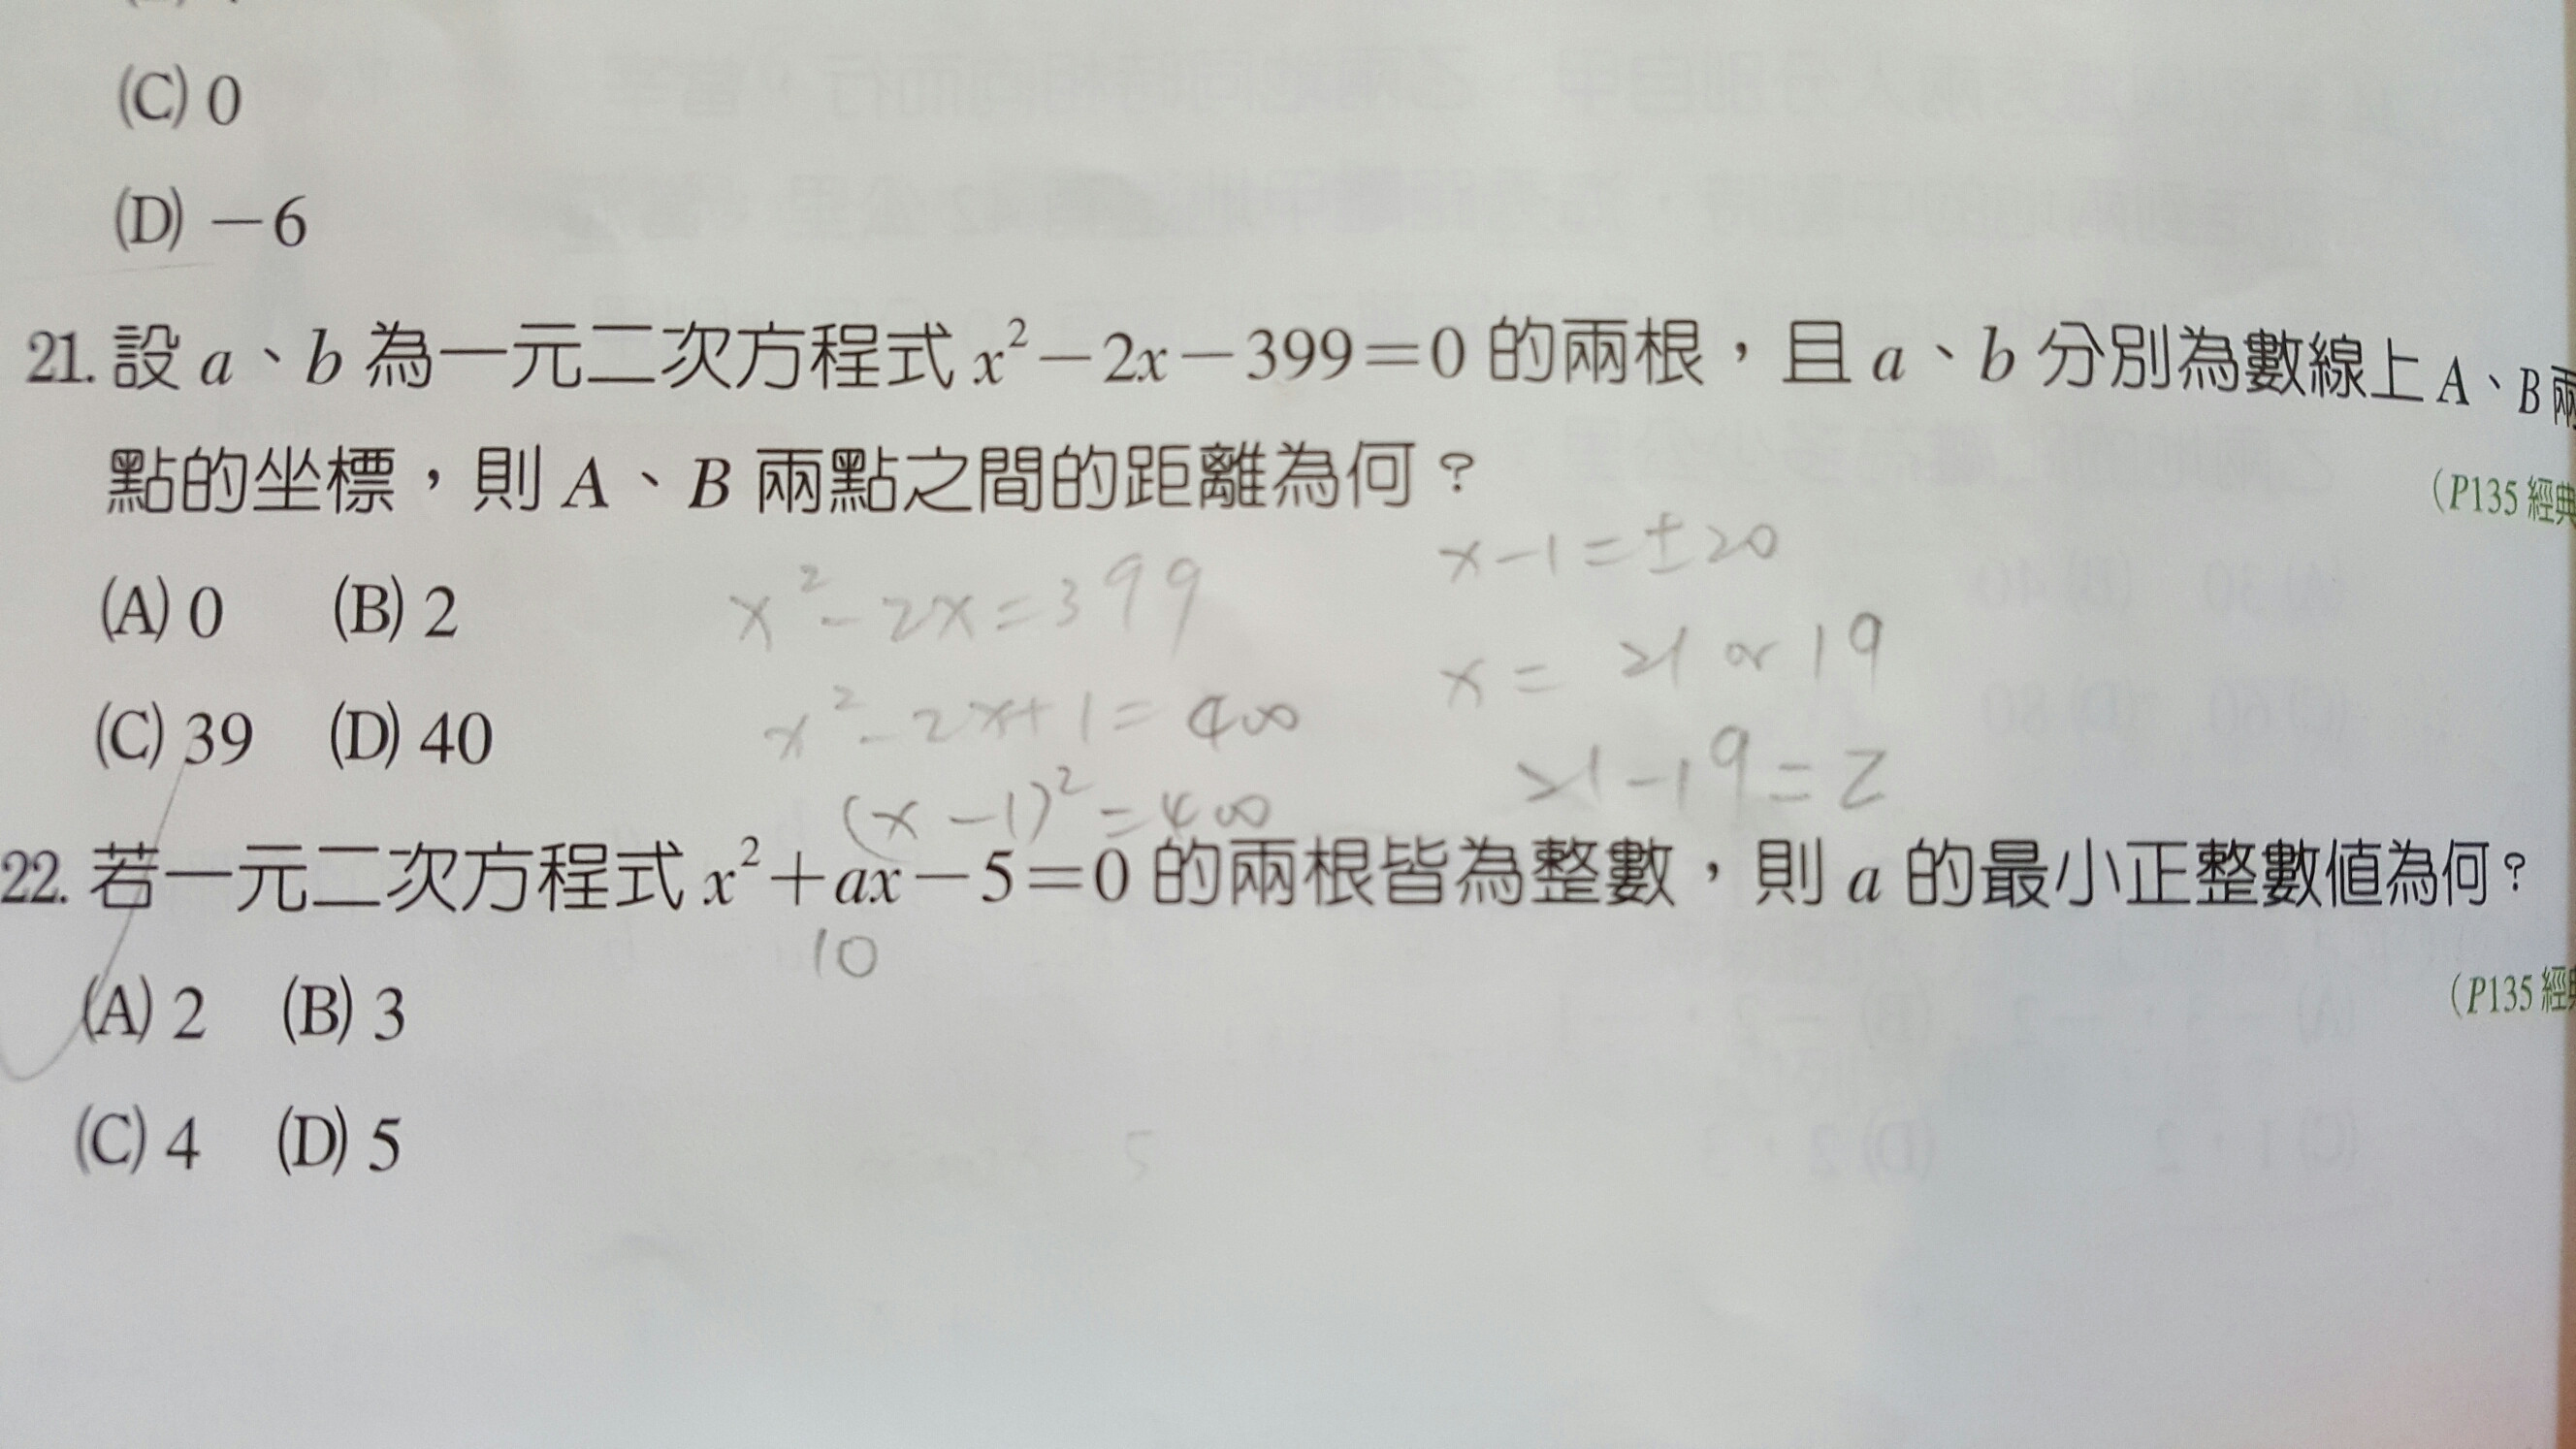 (C) 0
(D) －6
21. 設 a、b 為一元二次方程式 x²－2x－399＝0 的兩根，且 a、b 分別為數線上 A、B 兩
點的坐標，則 A、B 兩點之間的距離為何？
(P135 經典
(A) 0 (B) 2
(C) 39 (D) 40
x²-2x=399
x²-2x+1=400
(x-1)²=400
x-1=±20
x= 21 or 19
21-19=2
22. 若一元二次方程式 x²＋ax－5＝0 的兩根皆為整數，則 a 的最小正整數值為何？
10
(P135 經
(A) 2 (B) 3
(C) 4 (D) 5